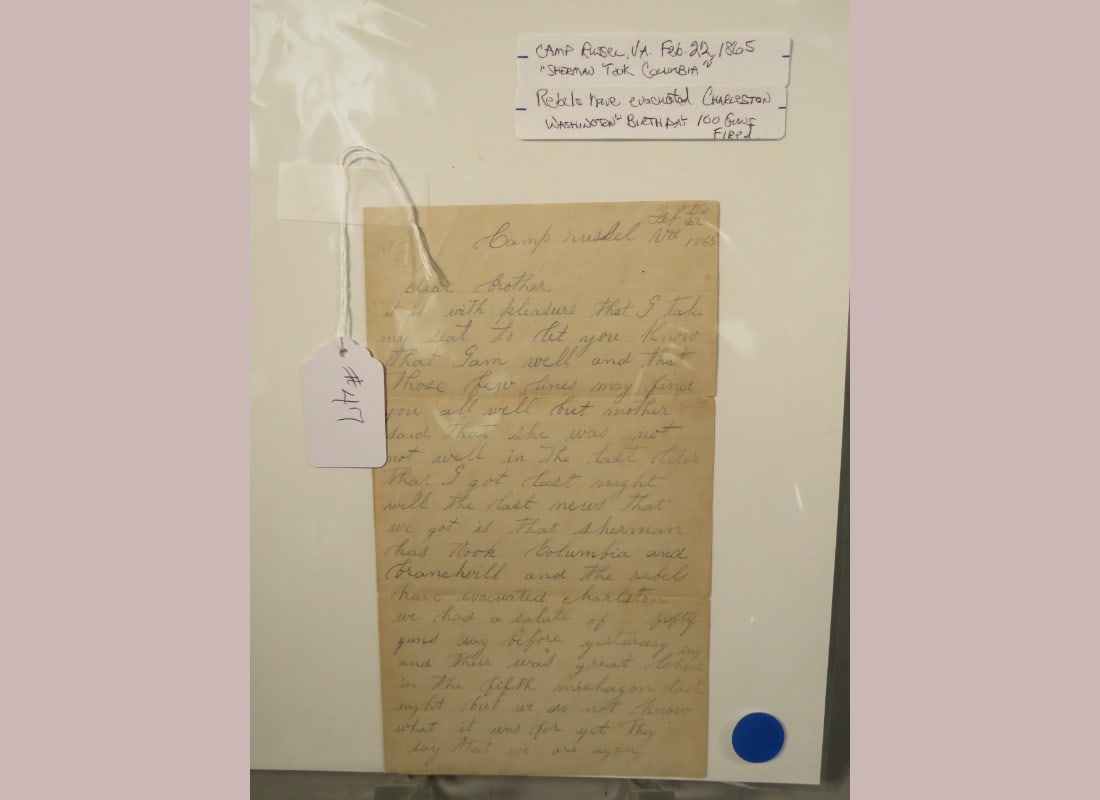 CAMP Russel, VA. Feb. 22, 1865
"SHERMAN TOOK COLUMBIA"
Rebels have evacuated CHARLESTON
WASHINGTON" BIRTHDAY 100 Guns
FIRED
#47
Feb the
22
Camp russel Va 1865
dear brother
it is with pleasure that I take
my seat to let you know
that I am well and that
those few lines may find
you all well but mother
said that she was not
not well in the last leter
that I got last night
well the last news that
we got is that sherman
has took Columbia and
branchvill and the rebels
have evacuated charlston
we had a salute of fifty
guns day before yesturday
and their was great
in the fifth michagon last
night but we do not know
what it was for yet they
say that we are again